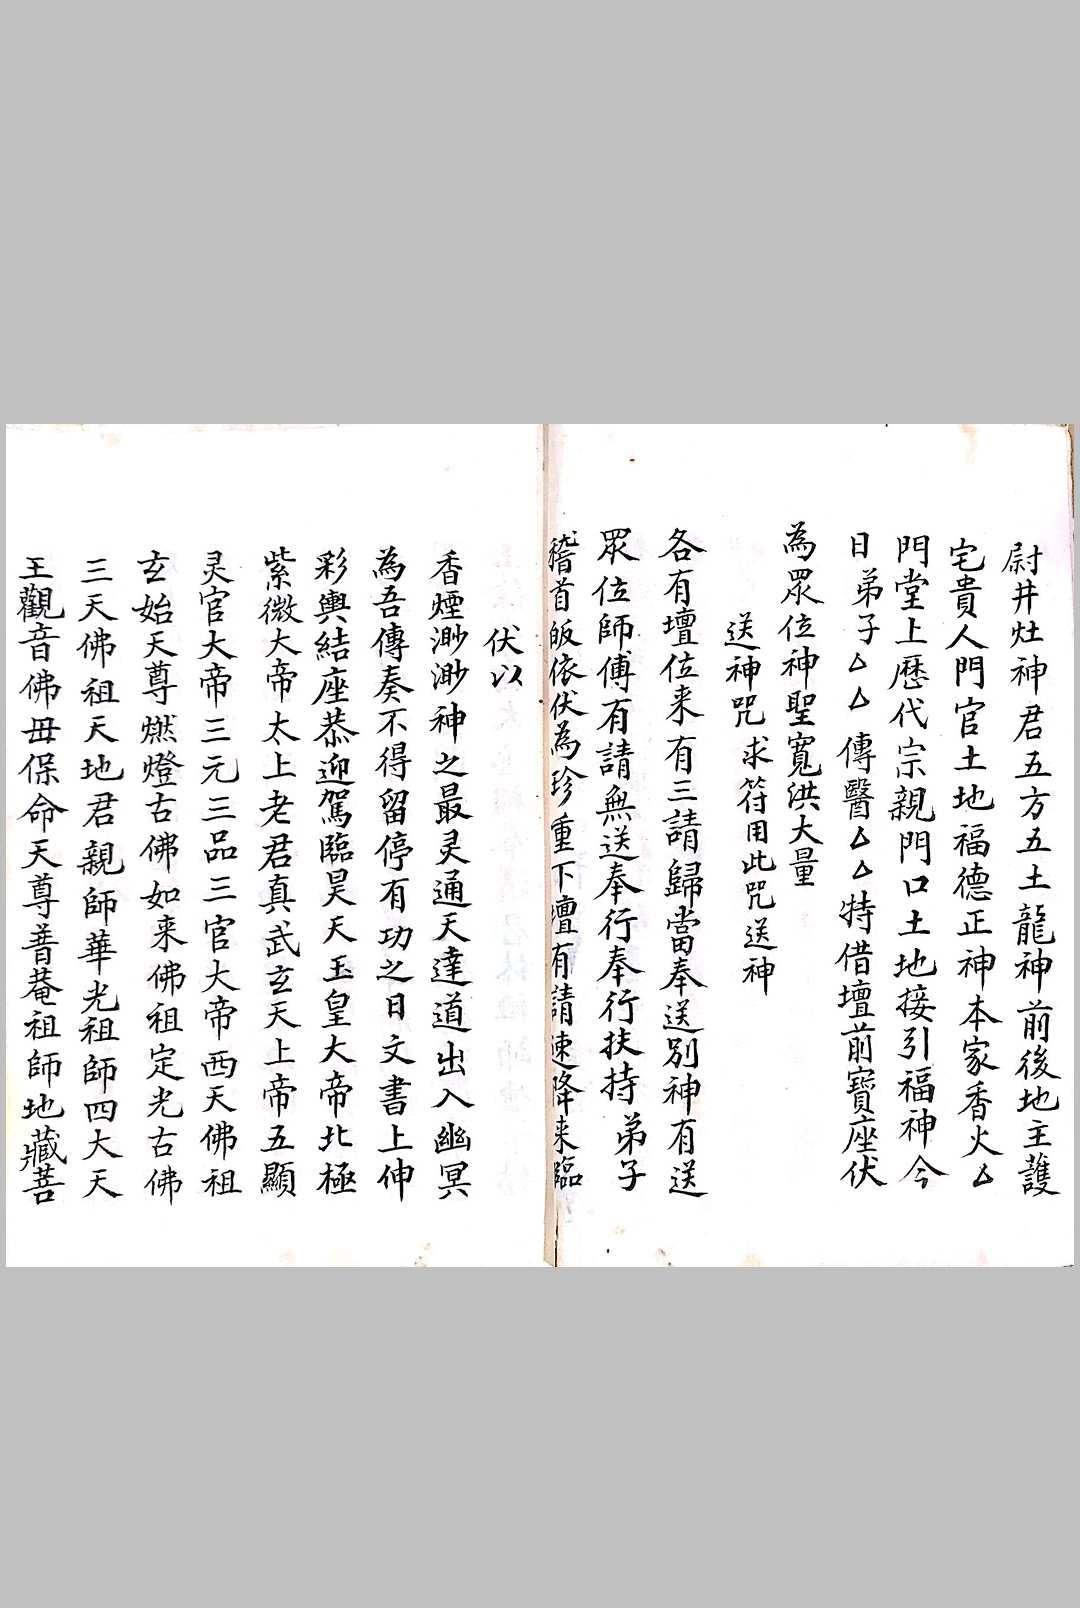 尉井灶神君五方五土龍神前後地主護
宅貴人門官土地福德正神本家香火厶
門堂上歷代宗親門口土地接引福神今
日弟子厶厶傳醫厶厶特借壇前寶座伏
為眾位神聖寬洪大量
送神咒求符用此咒送神
各有壇位来有三請歸當奉送別神有送
眾位師傅有請無送奉行奉行扶持弟子
稽首皈依伏為珍重下壇有請速降来臨
伏以
香煙渺渺神之最灵通天達道出入幽冥
為吾傳奏不得留停有功之日文書上伸
彩輿結座恭迎駕臨昊天玉皇大帝北極
紫微大帝太上老君真武玄天上帝五顯
灵官大帝三元三品三官大帝西天佛祖
玄始天尊燃燈古佛如来佛祖定光古佛
三天佛祖天地君親師華光祖師四大天
王觀音佛毋保命天尊普菴祖師地藏菩